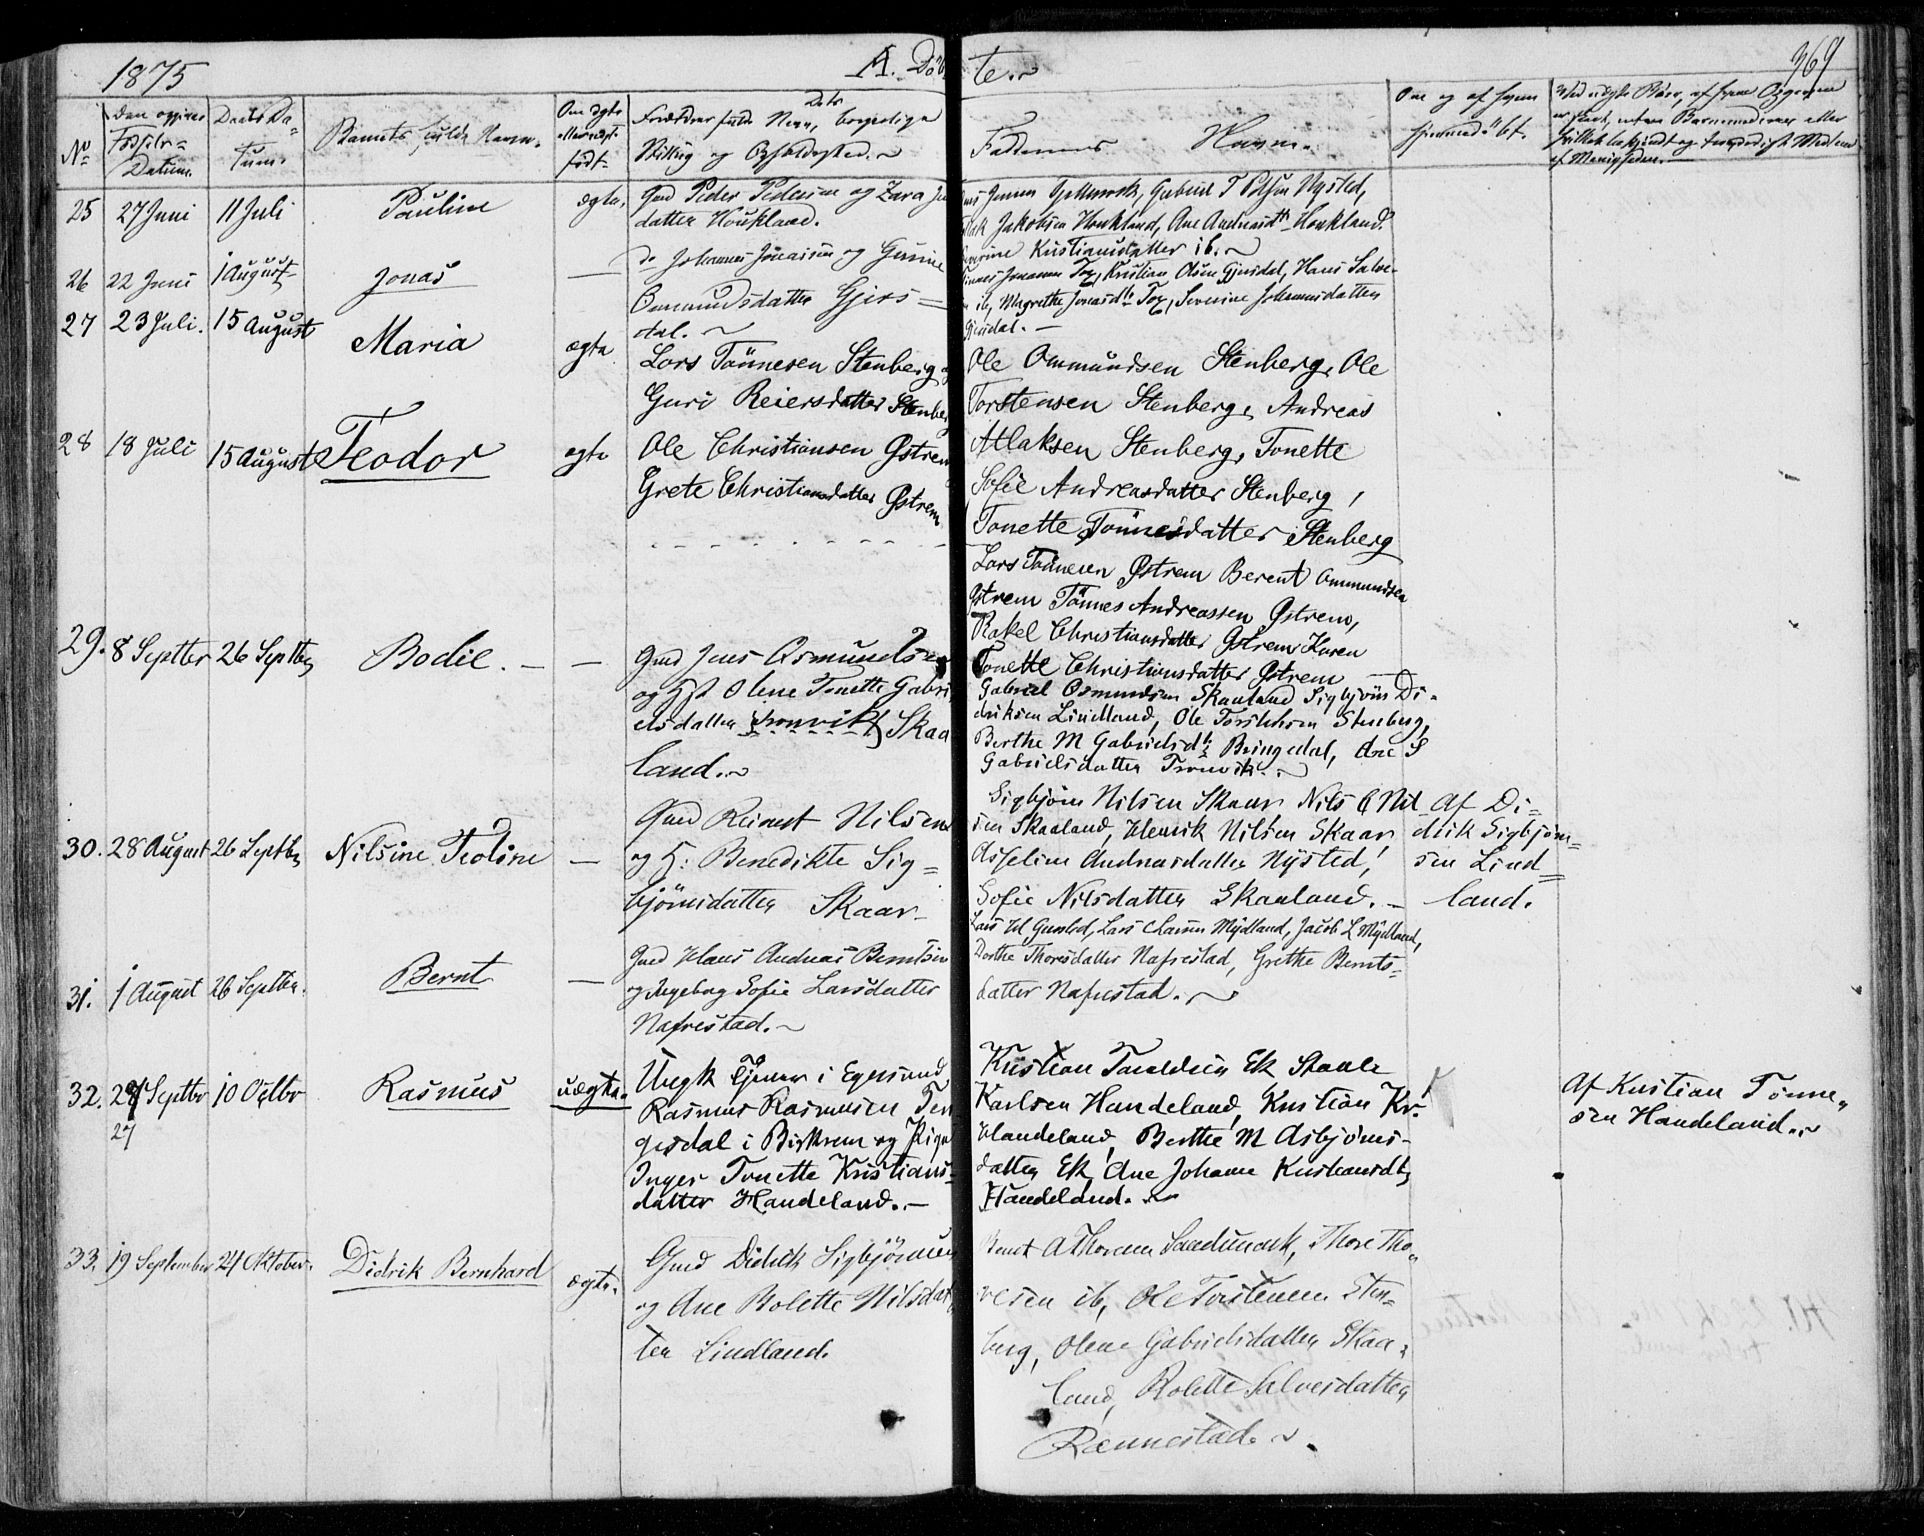 1875
A. Döbte.
369
No
Den opgivne Fødsels-Datum.
Daabs Datum.
Barnets fulde Navn.
Om ægte eller uægte født.
Forældres fulde Navn, Dets borgerlige Stilling og Opholdssted.
Faddernes Navne.
Om og af hvem hjemmedöbt.
25 27 Juni 11 Juli Pauline ægte.
Gmd Peder Pedersen og Zara
datter Houkland.
Gabriel T Nysted,
Jakobsen Houkland, Ane Andreasdtr Houkland,
Kristiansdatter ib.
26 22 Juni 1 August Jonas —
do Johannes Jonassen og Gurine
Ommundsdatter Gjers=
dal.
Jonassen Tog, Kristian Olsen Gjersdal, Hans Salve-
ib, Magrethe Jonasdtr Tog, Severine Johannesdatter
Gjersdal. —
27 23 Juli. 15 August Maria ægte
Lars Tönnesen Stenberg og
Guri Reiersdatter Stenberg
Ole Ommundsen Stenberg, Ole
Torstensen Stenberg, Andreas
Atlaksen Stenberg, Tonette
Sofie Andreasdatter Stenberg,
Tonette Tönnesdatter Stenberg
28 18 Juli 15 August Teodor ægte
Ole Christiansen Østrem
Grete Christiansdatter Østrem
Lars Tönnesen Østrem Berent Ommundsen
Østrem Tönnes Andreassen Østrem,
Rakel Christiansdatter Østrem Karen
Tonette Christiansdatter Østrem —
29. 8 Septbr 26 Septbr Bodil. — —
Gmd Jens Osmundsen
og Hst Olene Tonette Gabri
elsdatter Tronvik Skaa
land.
Gabriel Osmundsen Skaaland Sigbjörn Di-
driksen Lindland, Ole Torstensen Stenberg,
Berthe M Gabrielsdtr Bringedal, Ane S
Gabrielsdatter Tronvik.
30. 28 August 26 Septbr Nilsine Teoline —
Gmd Reinert Nilsen
og H: Benedikte Sig=
björnsdatter Skaar
Sigbjörn Nilsen Skaar Nils G Nil
sen Skaaland, Henrik Nilsen Skaar
Asseline Andreasdatter Nysted,
Sofie Nilsdatter Skaaland. —
Af Di=
drik Sigbjörn=
sen Lind=
land.
31. 1 August 26 Septbr. Bernt —
Gmd Hans Andreas Berntsen
og Ingeborg Sofie Larsdatter
Nafrestad.
Lars Larsen Mydland, Jacob L Mydland,
Dorthe Thoresdatter Nafrestad, Grethe Bernts-
datter Nafrestad.
32. 27 Septbr 10 Octbr Rasmus uægte.
27
Ungk Tjener i Egersund
Rasmus Rasmusen Ten
gesdal i Birkrem og Pige
Inger Tonette Kristians=
datter Handeland. —
Kristian Taraldsen Ek Staale
Karlsen Handeland, Kristian Kr.
Handeland, Berthe M Asbjörns-
datter Ek, Ane Johanne Kristiansdtr
Handeland.
Af Kristian Tönne
sen Handeland.
33. 19 September 24 Oktober. Didrik Bernhard ægte.
Gmd Didrik Sigbjörnsen
og Ane Bolette Nilsdat
ter Lindland.
Bernt A Thorsen Sandsmark, Thore Tho
resen ib, Ole Torstensen Sten=
berg, Olene Gabrielsdatter Skaa
land, Bolette Salvesdatter
Rannestad.